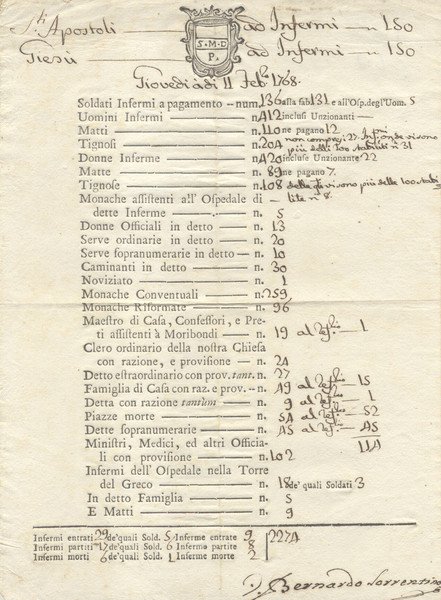 Sti. Apostoli — ad Infermi — n 180
Giesù — ad Infermi — n 180
S·M·D
P.
Giovedì a dì 11 Feb.º 1768.
Soldati Infermi a pagamento — num. 136 alla fab 131 e all'Osp. degl'Uom. 5
Uomini Infermi — n. 412 inclusi Unzionanti —
Matti — n. 110 ne pagano 12
Tignosi — n. 204 non compresi 33 Infni onde visono più delli 100 stabiliti n. 31
Donne Inferme — n. 420 incluse Unzionante 22
Matte — n. 89 ne pagano 7.
Tignose — n. 108 delle quali visono più delle 100 stabi
Monache assistenti all' Ospedale di — lite n. 8
dette Inferme — n. 5
Donne Officiali in detto — n. 13
Serve ordinarie in detto — n. 20
Serve sopranumerarie in detto — n. 10
Caminanti in detto — n. 30
Noviziato — n. 1
Monache Conventuali — n. 259
Monache Riformate — n. 96
Maestro di Casa, Confessori, e Pre-
ti assistenti à Moribondi — n. 19 al — 1
Clero ordinario della nostra Chiesa
con razione, e provisione — n. 24
Detto estraordinario con prov. tant. n. 27
Famiglia di Casa con raz. e prov. — n. 49 al — 15
Detta con razione tantùm — n. 9 al — 1
Piazze morte — n. 54 al — 52
Dette sopranumerarie — n. 45 al — 45
Ministri, Medici, ed altri Officia- 114
li con provisione — n. 102
Infermi dell' Ospedale nella Torre
del Greco — n. 18 de' quali Soldati 3
In detto Famiglia — n. 5
E Matti — n. 9
Infermi entrati 29 de' quali Sold. 5 Inferme entrate 9
Infermi partiti 17 de' quali Sold. 0 Inferme partite 8 2274
Infermi morti 6 de' quali Sold. 1 Inferme morte 2
Bernardo Sorrentino